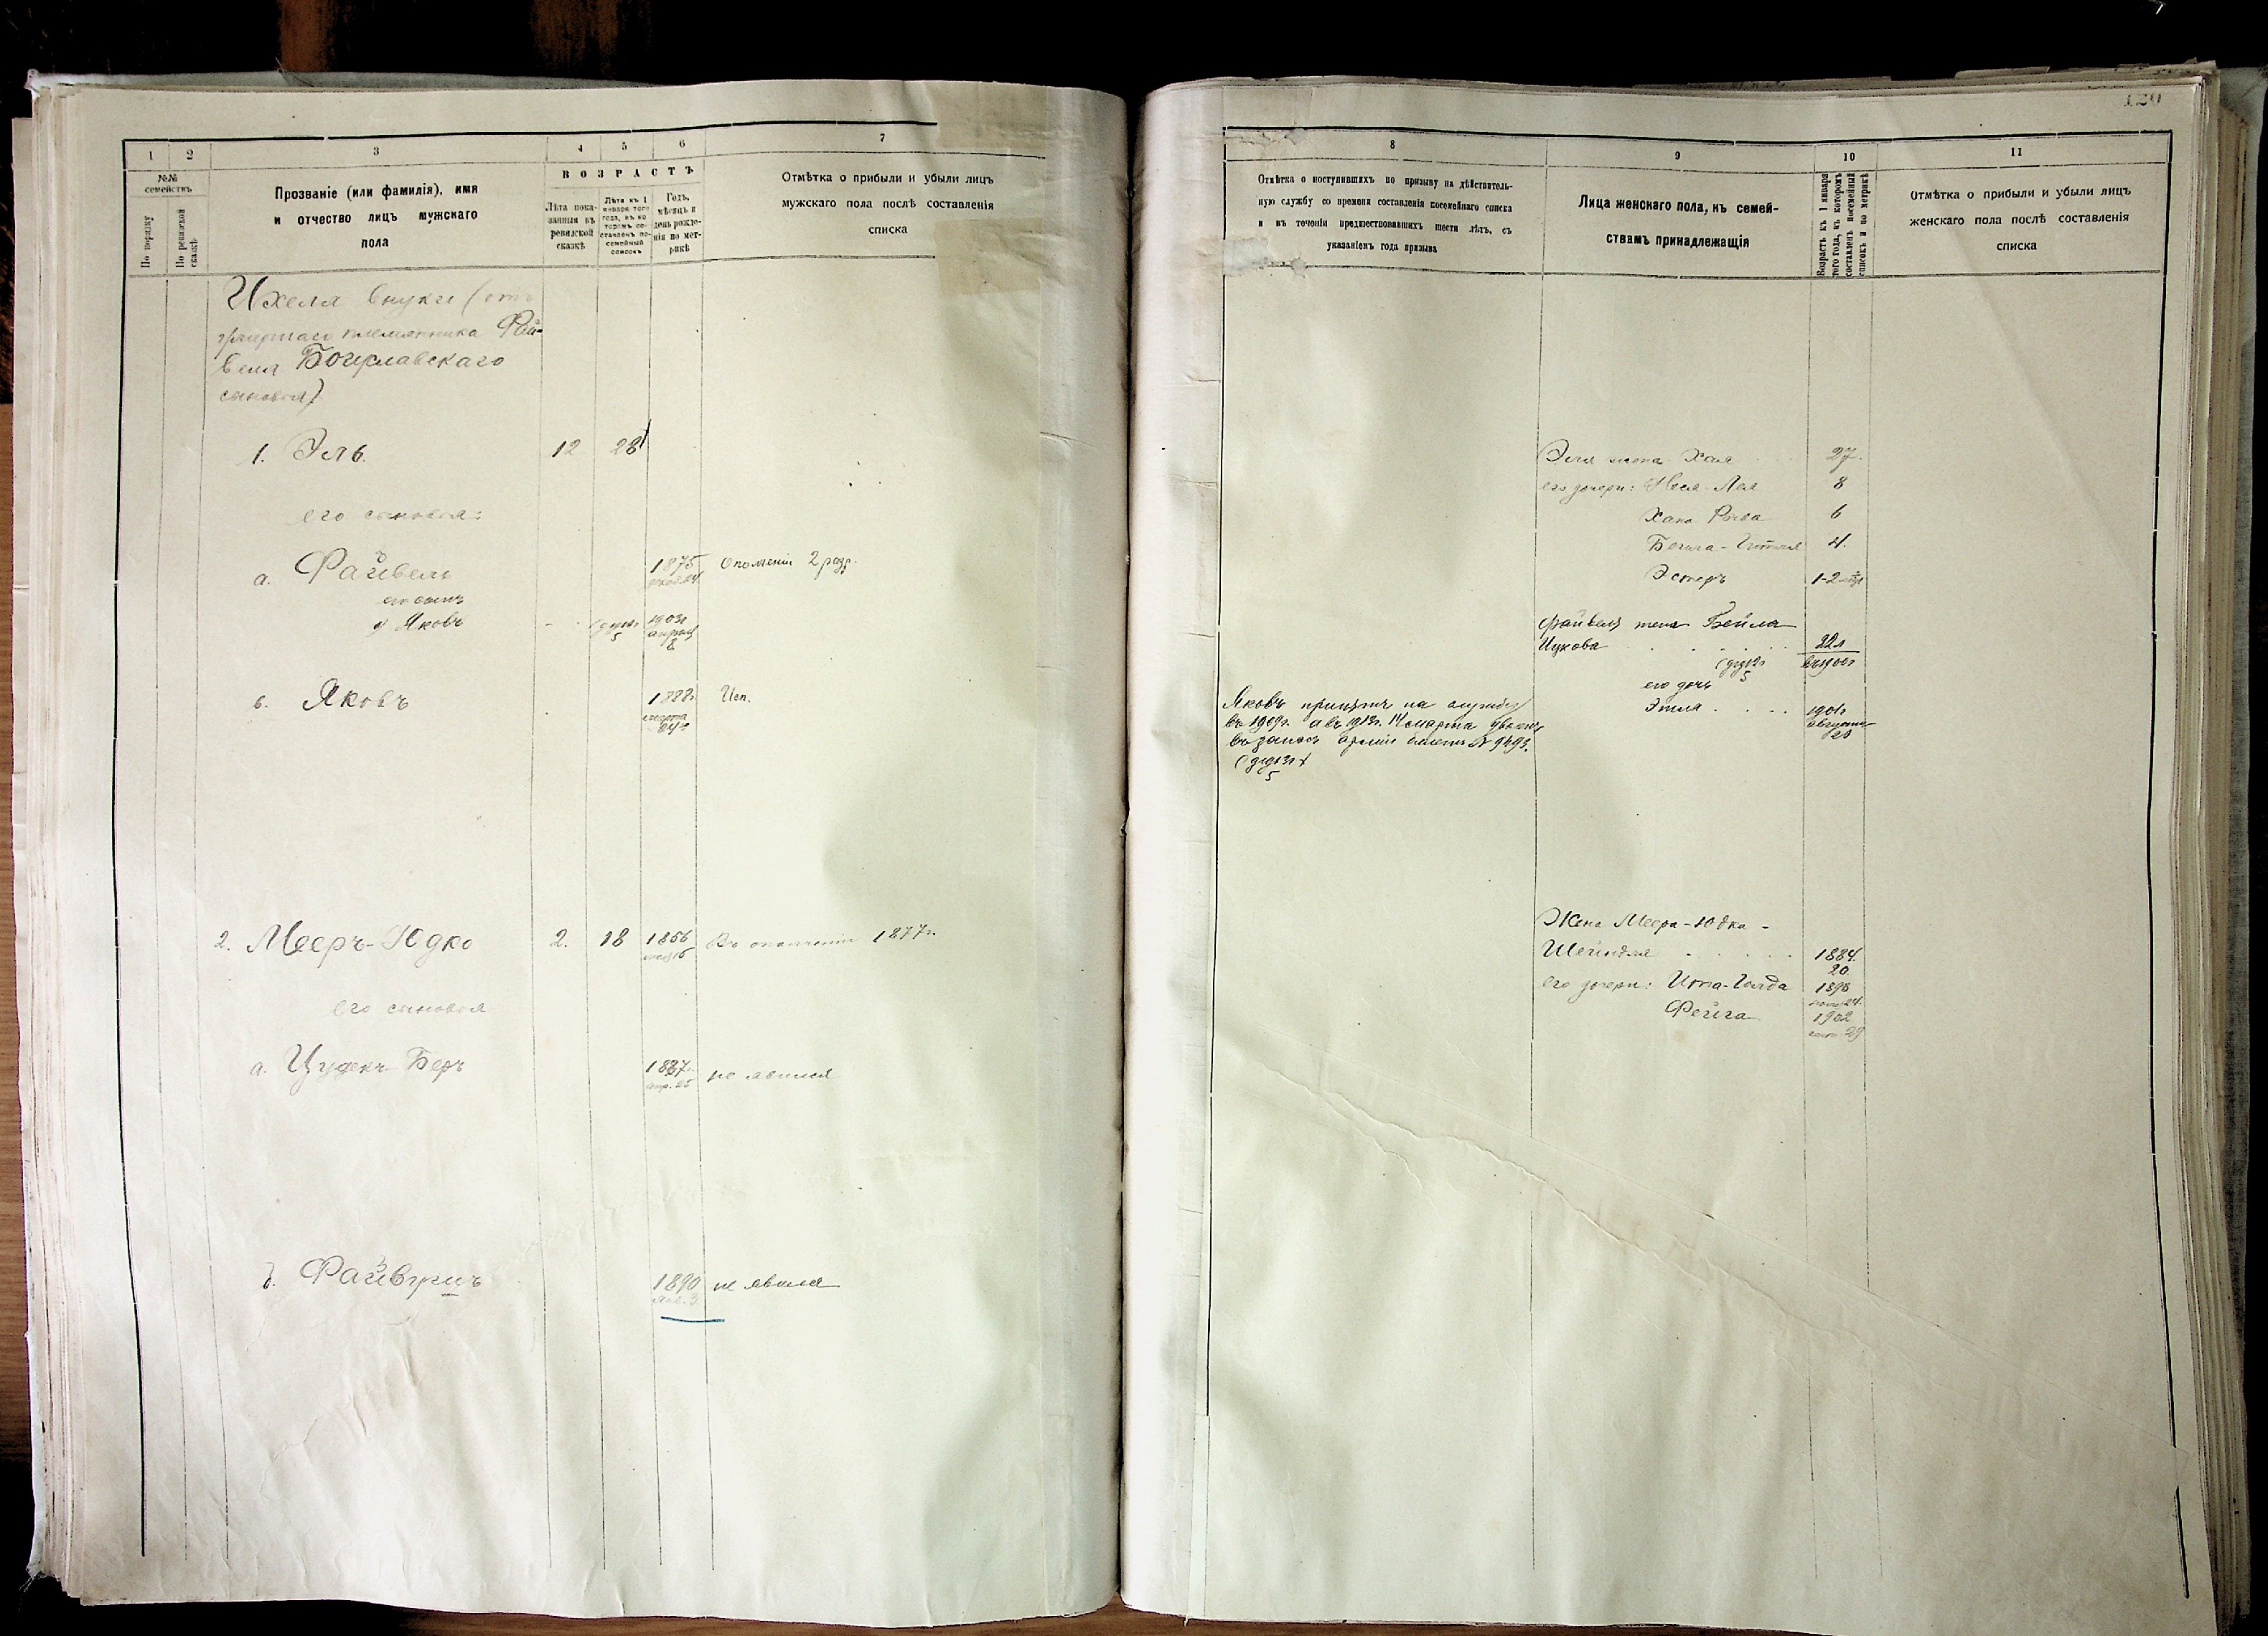 120
1
2
3
4
5
6
7
№№
семействъ
По порядку
По ревизской сказкѣ
Прозваніе (или фамилія), имя
и отчество лицъ мужскаго
пола
ВОЗРАСТЪ
Лѣта пока-
занныя въ
ревизской
сказкѣ
Лѣта къ 1
января того
года, въ ко
торомъ со-
ставленъ по-
семейный
списокъ
Годъ,
мѣсяцъ и
день рожде-
нія по мет-
рикѣ
Отмѣтка о прибыли и убыли лицъ
мужскаго пола послѣ составленія
списка
Ихеля внуки (отъ
умершаго племянника Фай-
веля Богуславскаго
сыновья)
1. Эль 12 28
его сыновья:
а. Файвель 1875 Ополченіи 2 разр.
его сынъ
Яковъ 1903г
апрѣля
8
в. Яковъ 1888г. Исп.
2. Мееръ-Юдко 2. 18 1856 Въ ополченіи 1877г.
его сыновья
а. Цудекъ Беръ 1887г. не явился
апр. 25
б. Файвушъ 1890 не явился
8
9
10
11
Отмѣтка о поступившихъ по призыву на дѣйствитель-
ную службу со времени составленія посемейнаго списка
и въ теченіи предшествовавшихъ шести лѣтъ, съ
указаніемъ года призыва
Лица женскаго пола, къ семей-
ствамъ принадлежащія
Возрастъ къ 1 января
того года, въ которомъ
составленъ посемейный
списокъ и по метрикѣ
Отмѣтка о прибыли и убыли лицъ
женскаго пола послѣ составленія
списка
Эля жена Хая 27.
его дочери: Нося-Лея 8
Хана Рива 6
Бейла-Гитля 4.
Эстеръ 1-2
Файвеля жена Бейла
Ицкова 22л
въ 1900г
его дочь
Этля 1901г
августа
20
Яковъ принятъ на службу
въ 1909г. а въ 1913г. 14 марта уволенъ
въ запасъ арміи билетъ № 9493.
Жена Меера-Юдка -
Шейндля 1884.
20
его дочери: Ита-Голда 1898
Фейга 1902